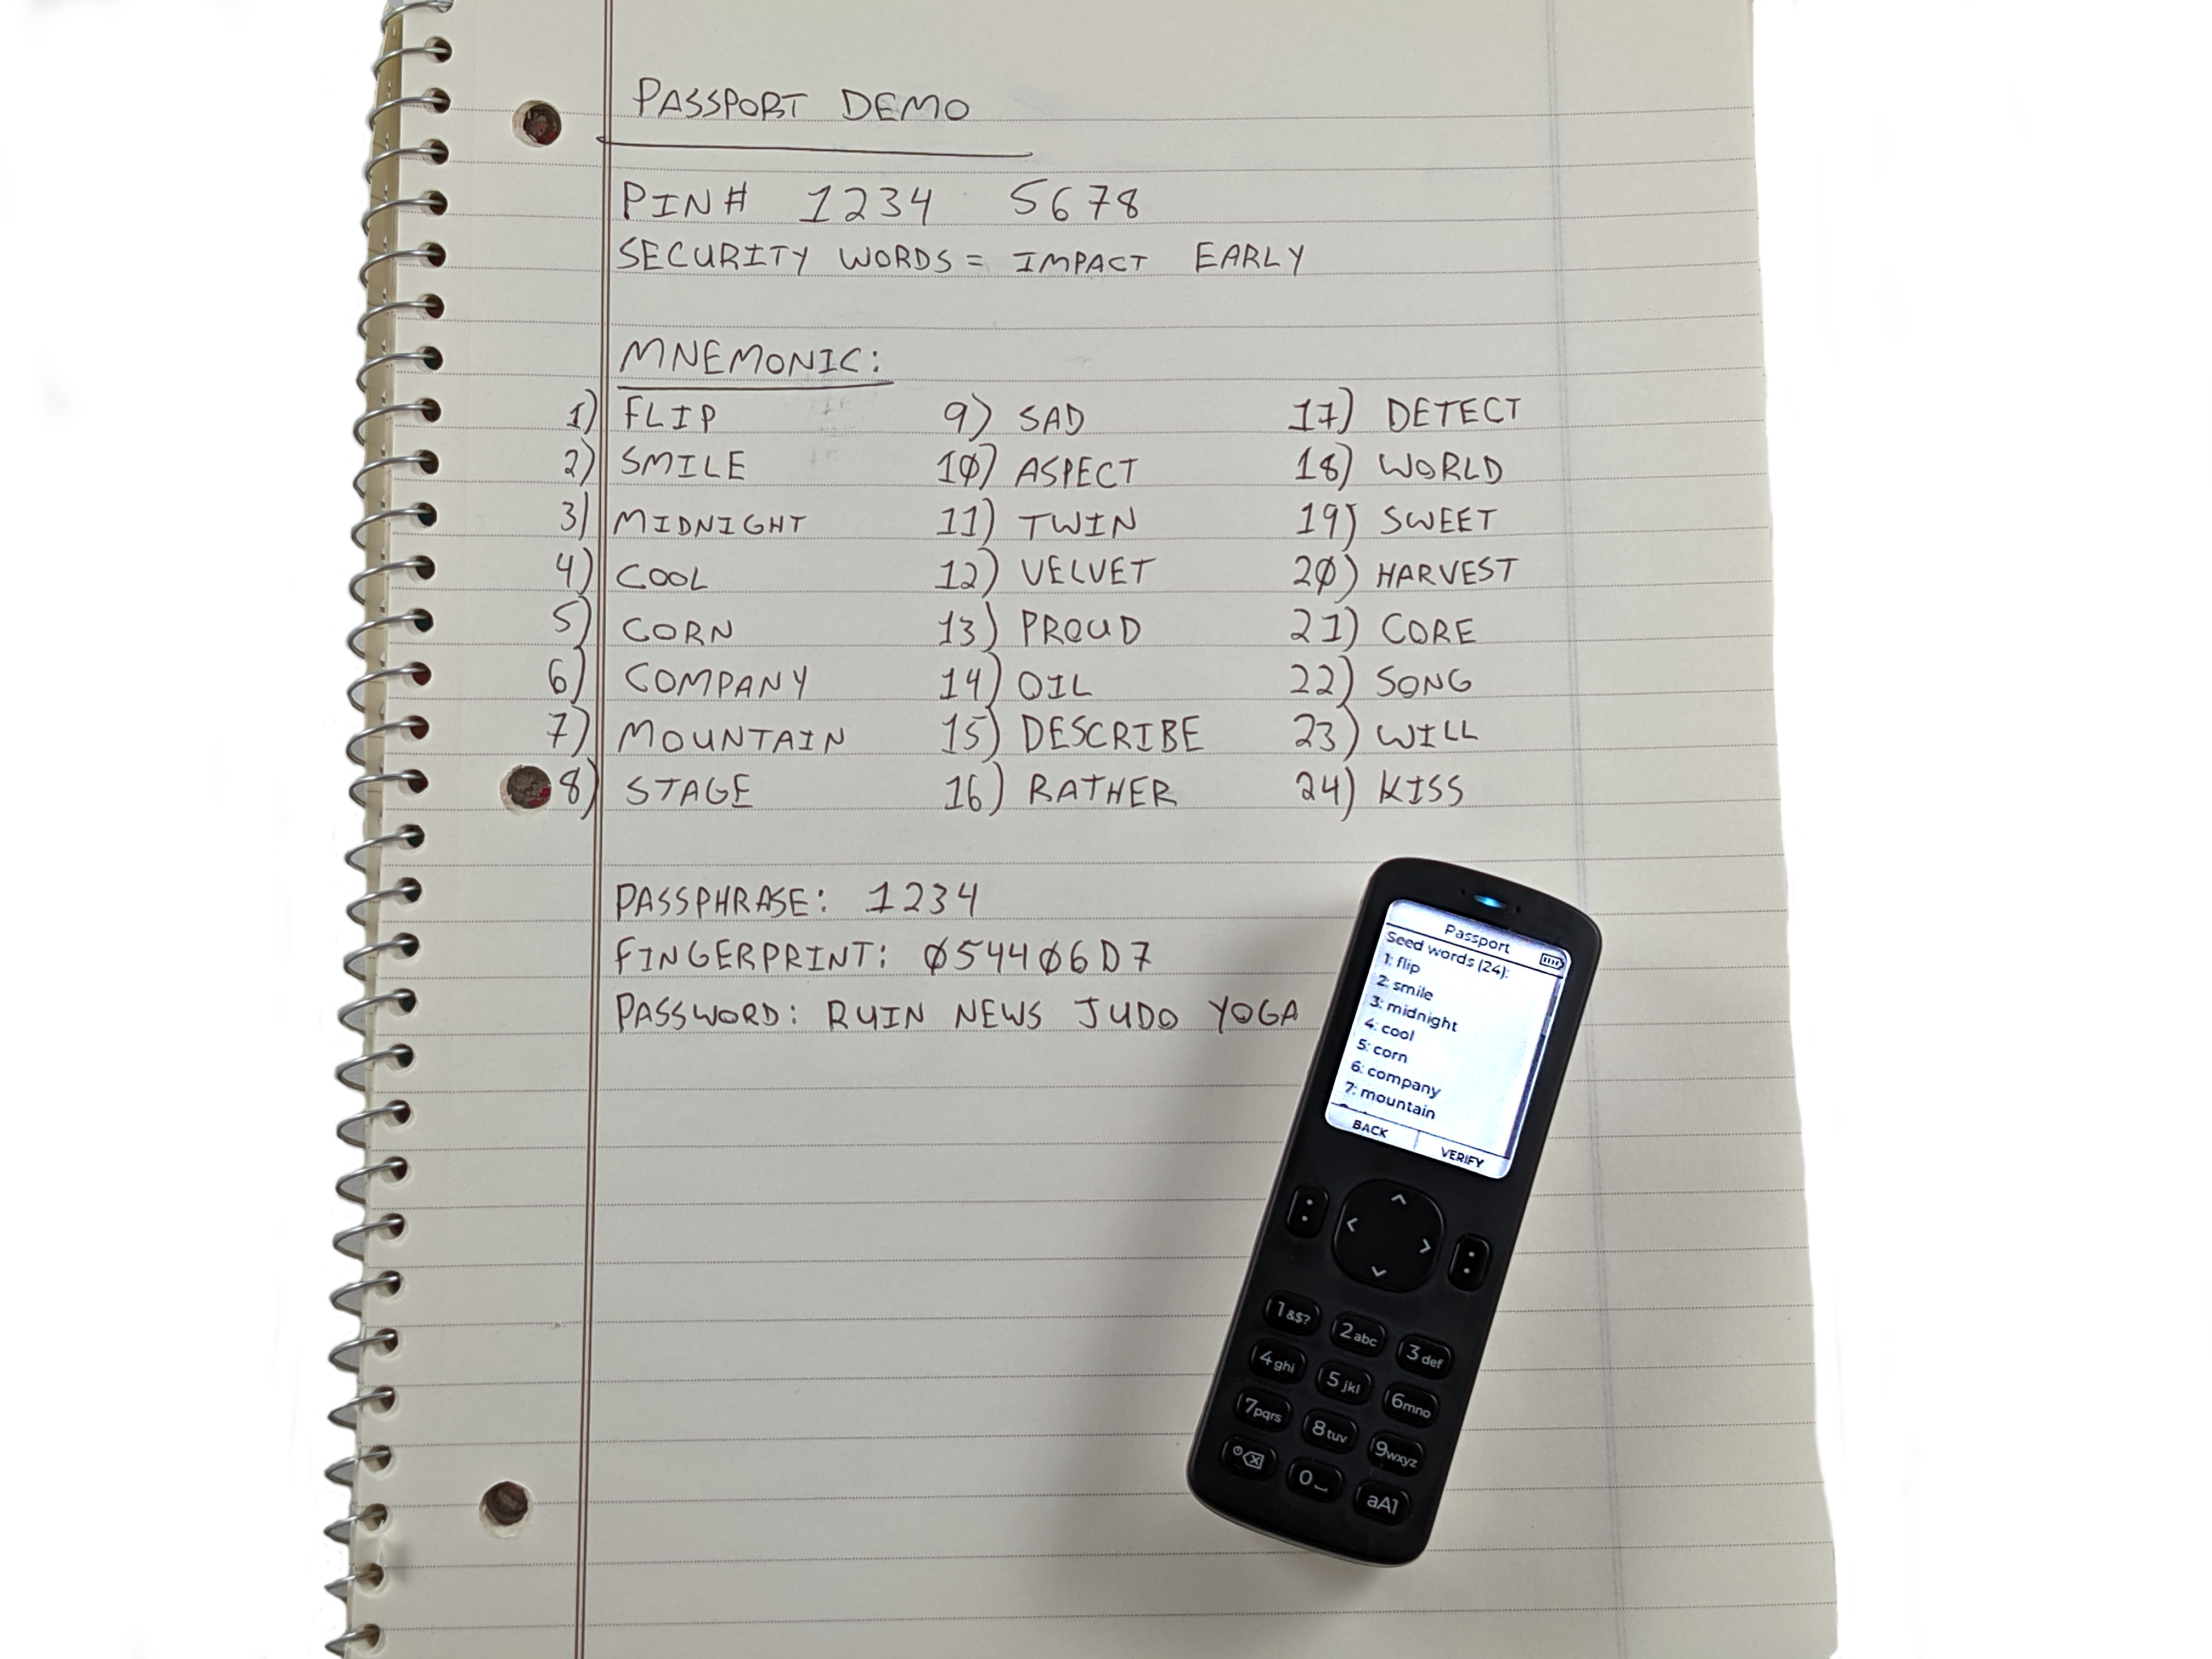 PASSPORT DEMO
PIN# 1234 5678
SECURITY WORDS = IMPACT EARLY
MNEMONIC:
1) FLIP
2) SMILE
3) MIDNIGHT
4) COOL
5) CORN
6) COMPANY
7) MOUNTAIN
8) STAGE
9) SAD
10) ASPECT
11) TWIN
12) VELVET
13) PROUD
14) OIL
15) DESCRIBE
16) RATHER
17) DETECT
18) WORLD
19) SWEET
20) HARVEST
21) CORE
22) SONG
23) WILL
24) KISS
PASSPHRASE: 1234
FINGERPRINT: 054406D7
PASSWORD: RUIN NEWS JUDO YOGA
Passport
Seed words (24):
1: flip
2: smile
3: midnight
4: cool
5: corn
6: company
7: mountain
BACK VERIFY
1 &$? 2 abc 3 def
4 ghi 5 jkl 6 mno
7 pqrs 8 tuv 9 wxyz
0 aA1